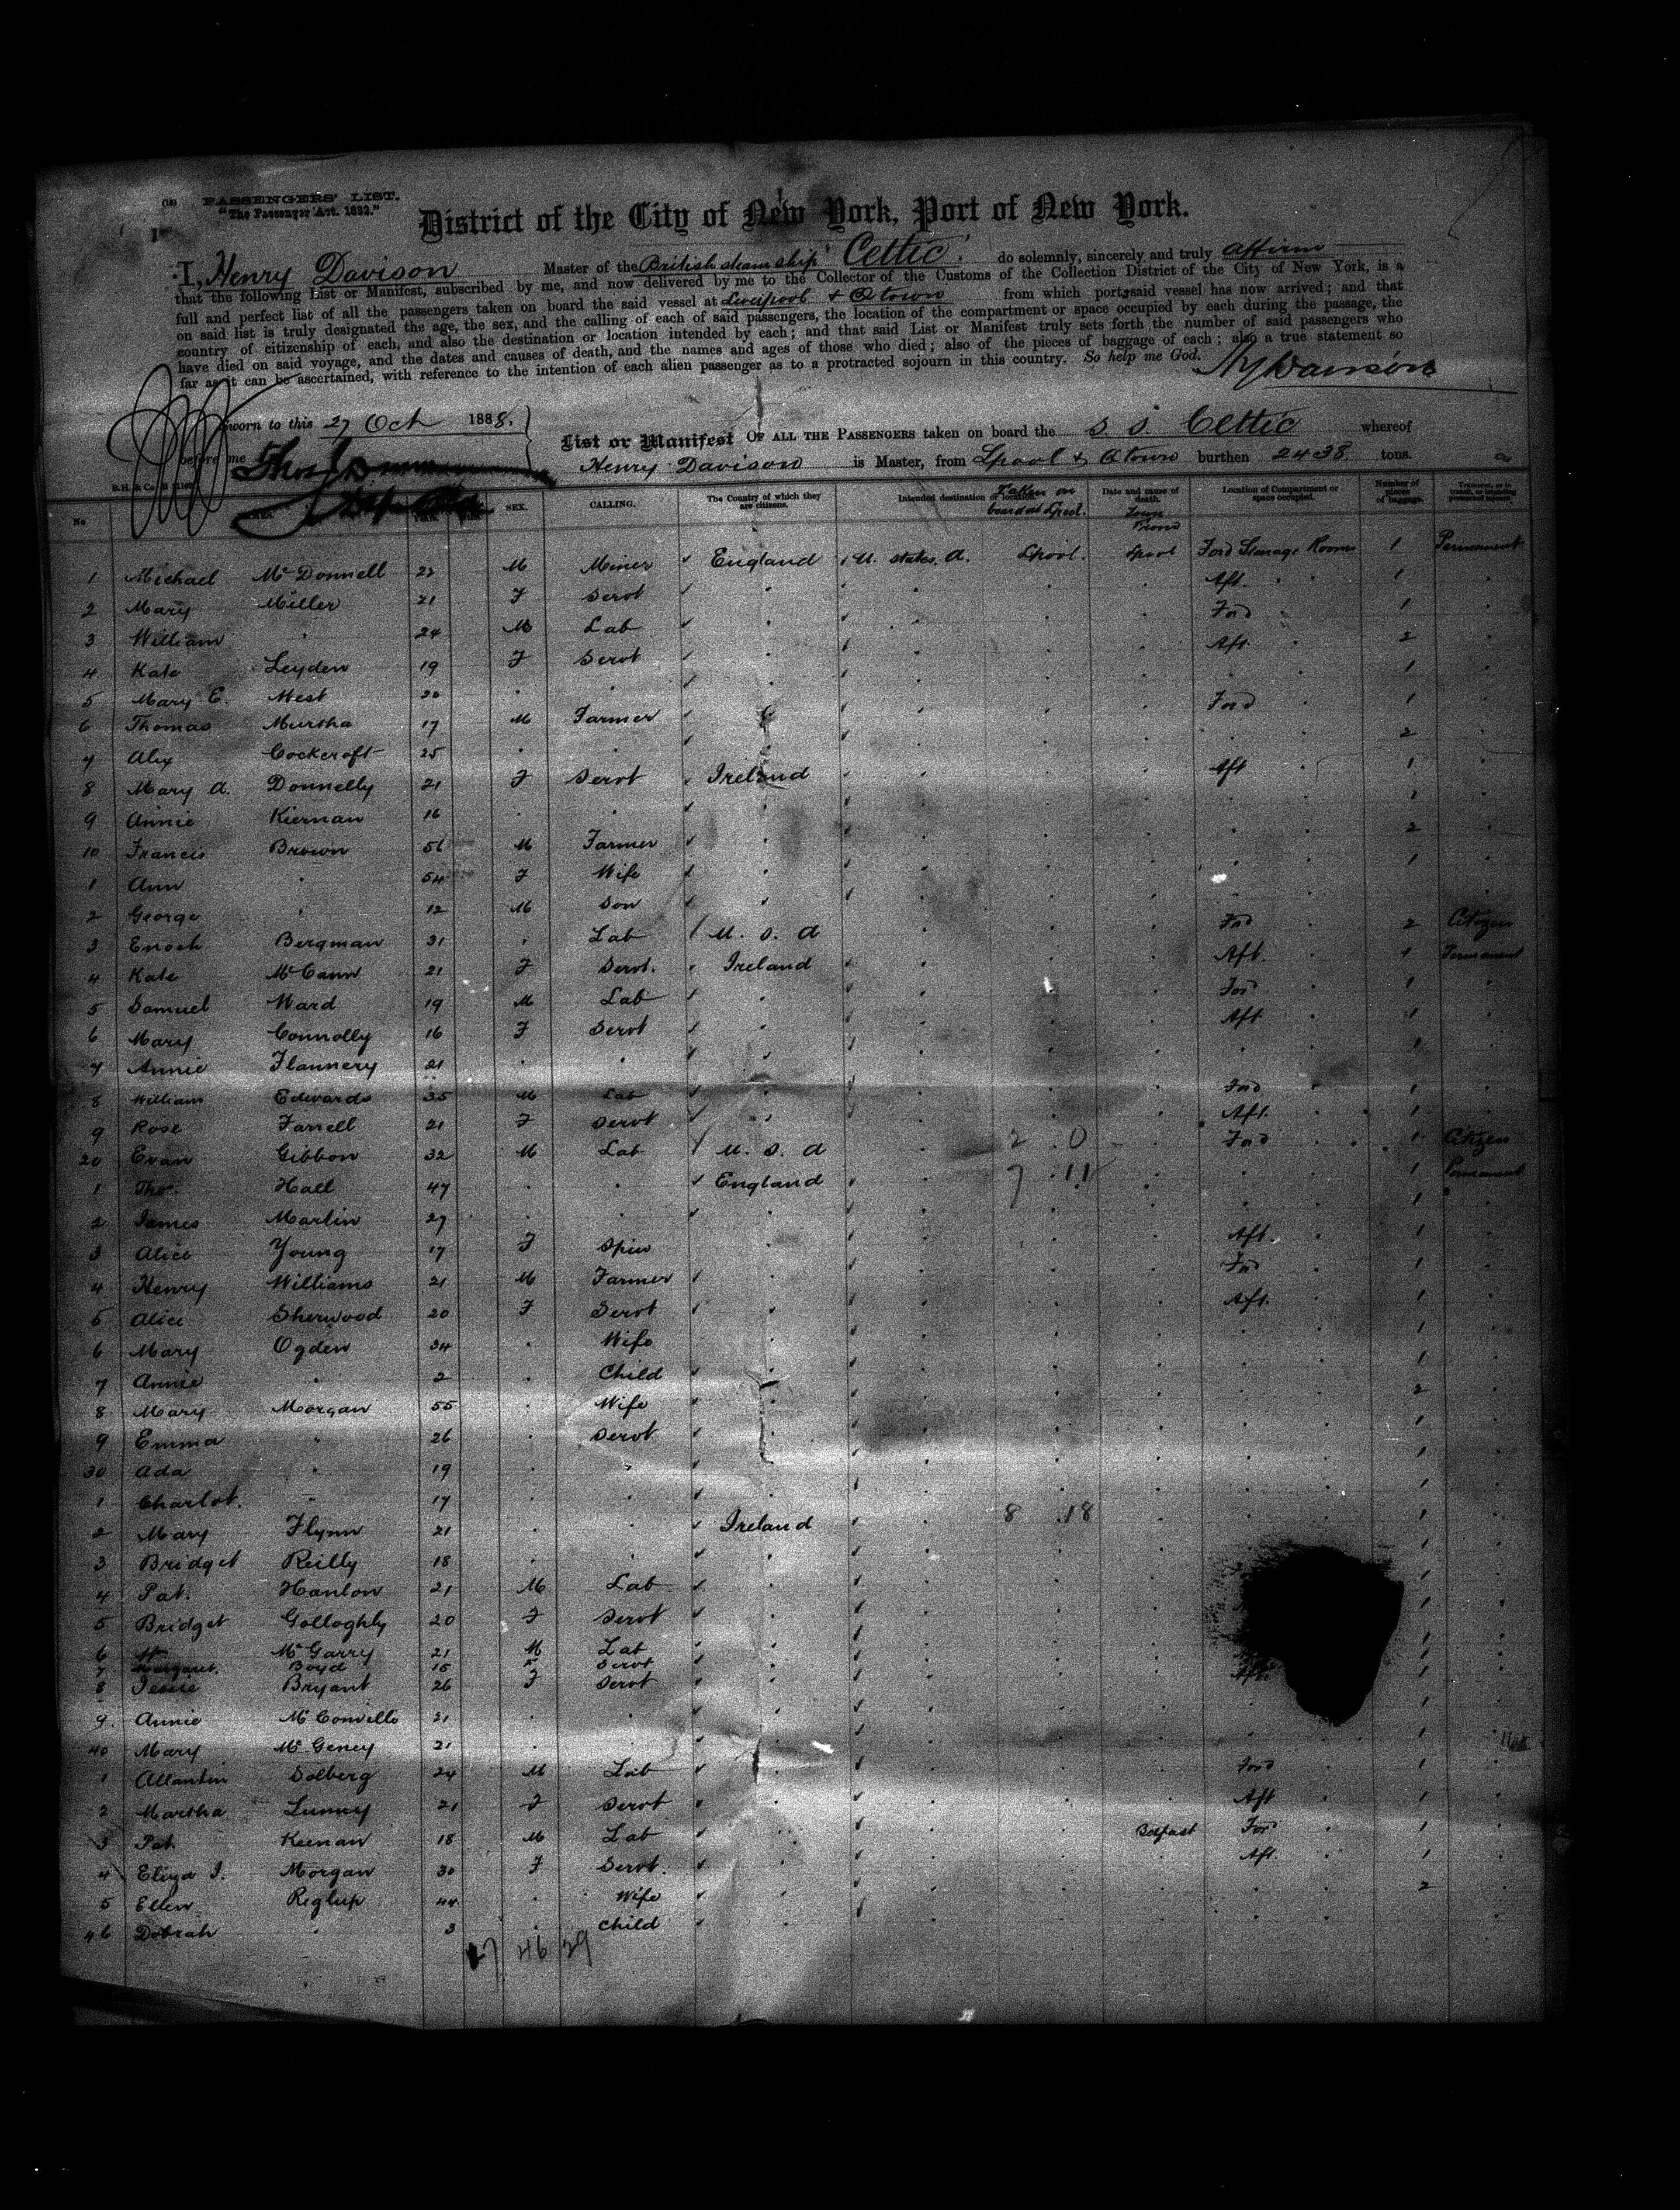 (18) PASSENGERS' LIST.
"The Passenger Act. 1882."
1
District of the City of New York, Port of New York.
I, Henry Davison Master of the British steam ship "Celtic" do solemnly, sincerely and truly affirm
that the following List or Manifest, subscribed by me, and now delivered by me to the Collector of the Customs of the Collection District of the City of New York, is a
full and perfect list of all the passengers taken on board the said vessel at Liverpool & Qtown from which ports said vessel has now arrived; and that
on said list is truly designated the age, the sex, and the calling of each of said passengers, the location of the compartment or space occupied by each during the passage, the
country of citizenship of each, and also the destination or location intended by each; and that said List or Manifest truly sets forth the number of said passengers who
have died on said voyage, and the dates and causes of death, and the names and ages of those who died; also of the pieces of baggage of each; also a true statement so
far as it can be ascertained, with reference to the intention of each alien passenger as to a protracted sojourn in this country. So help me God.
Hy Davison
Sworn to this 27 Oct 1888.
before me
List or Manifest OF ALL THE PASSENGERS taken on board the S. S. Celtic whereof
Henry Davison is Master, from Lpool & Qtown burthen 2438 tons.
No SEX. CALLING. The Country of which they are citizens. Intended destination or location. Taken on board at Lpool. Date and cause of death. Location of Compartment or space occupied. Number of pieces of baggage. Transient, or in transit, or intending protracted sojourn
1 Michael McDonnell 22 M Miner England U. states. A. Lpool. Lpool Ford Steerage Rooms 1 Permanent
2 Mary Miller 21 F Servt " Aft. 1
3 William " 24 M Lab " Ford 1
4 Kate Leyden 19 F Servt " Aft 2
5 Mary E. West 20 " " " 1
6 Thomas Murtha 17 M Farmer " Ford 1
7 Alex Cockcroft 25 " " " 2
8 Mary A. Donnelly 21 F Servt Ireland Aft 1
9 Annie Kiernan 16 " " " 1
10 Francis Brown 56 M Farmer " 2
1 Ann " 54 F Wife " 1
2 George " 12 M Son "
3 Enoch Bergman 31 " Lab U. S. A Ford 2 Citizen
4 Kate McCann 21 F Servt. Ireland Aft. 1 Permanent
5 Samuel Ward 19 M Lab " Ford 1
6 Mary Connolly 16 F Servt " Aft 1
7 Annie Flannery 21 " " " 1
8 William Edwards 35 M Lab " Ford 1
9 Rose Farrell 21 F Servt " Aft. 1
20 Evan Gibbon 32 M Lab U. S. A 2 0 Ford 1 Citizen
1 Thos. Hall 47 " " England 7 11 1 Permanent
2 James Martin 27 " " " 1
3 Alice Young 17 F Spin " Aft. 1
4 Henry Williams 21 M Farmer " Ford 1
5 Alice Sherwood 20 F Servt " Aft. 1
6 Mary Ogden 34 " Wife " 1
7 Annie " 2 " Child " 1
8 Mary Morgan 55 " Wife " 2
9 Emma " 26 " Servt " 1
30 Ada " 19 " " " 1
1 Charlot. " 17 " " " 1
2 Mary Flynn 21 " " Ireland 8 18 1
3 Bridget Reilly 18 " " " 1
4 Pat. Hanlon 21 M Lab " 1
5 Bridget Golloghly 20 F Servt " 1
6 McGarry 21 M Lab " 1
7 Margaret. Boyd 15 F Servt " 1
8 Jessie Bryant 26 F Servt " Aft. 1
9. Annie McConville 21 " " " 1
40 Mary McGeney 21 " " " 1
1 Allantin Solberg 24 M Lab " Ford 1
2 Martha Lunny 21 F Servt " Aft 1
3 Pat. Keenan 18 M Lab " Belfast Ford 1
4 Eliza J. Morgan 30 F Servt. " Aft. 1
5 Ellen Reglup 44 " Wife " 2
46 Dobrah " 3 " Child "
27 46 29